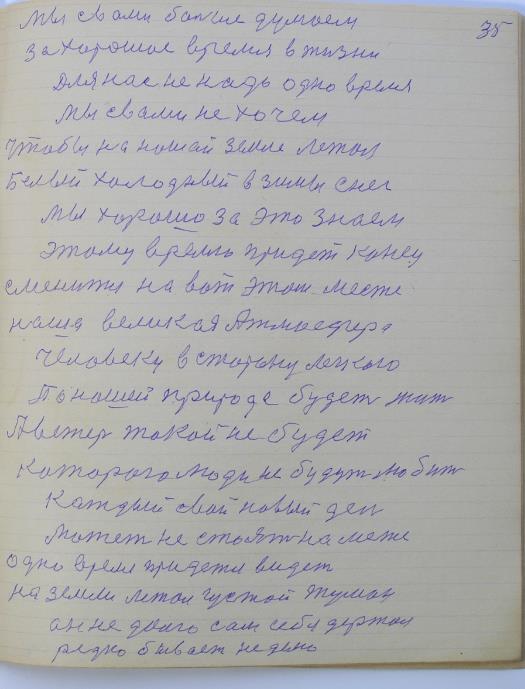 35
мы свами болше думаем
за хорошое время в жизни
Для нас не надь одно время
мы свами не хочем
Чтобы на нашай земле летал
Белый холодный в зимы снег
мы хорошо за это знаем
этому время придет конец
сменитя на вот этом месте
наша великая Атмосфера
Человеку в сторону легкого
По нашей природа будет жит
А ветер такой не будет
которого люди не будут любит
Каждый свой новый ден
может не стоят на меже
одно время придет и видет
на земли летал густой туман
ан не долго сам себя держал
редко бывает